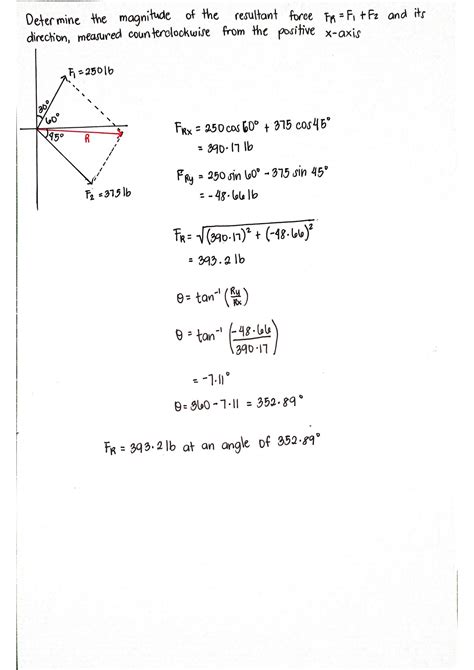 Determine the magnitude of the resultant force FR = F1 + F2 and its
direction, measured counterclockwise from the positive x-axis
F1 = 250 lb
30°
60°
45°
R
F2 = 375 lb
FRx = 250 cos 60° + 375 cos 45°
= 390.17 lb
FRy = 250 sin 60° - 375 sin 45°
= -48.66 lb
FR = √(390.17)² + (-48.66)²
= 393.2 lb
θ = tan⁻¹ (Ry/Rx)
θ = tan⁻¹ (-48.66/390.17)
= -7.11°
θ = 360 - 7.11 = 352.89°
FR = 393.2 lb at an angle of 352.89°